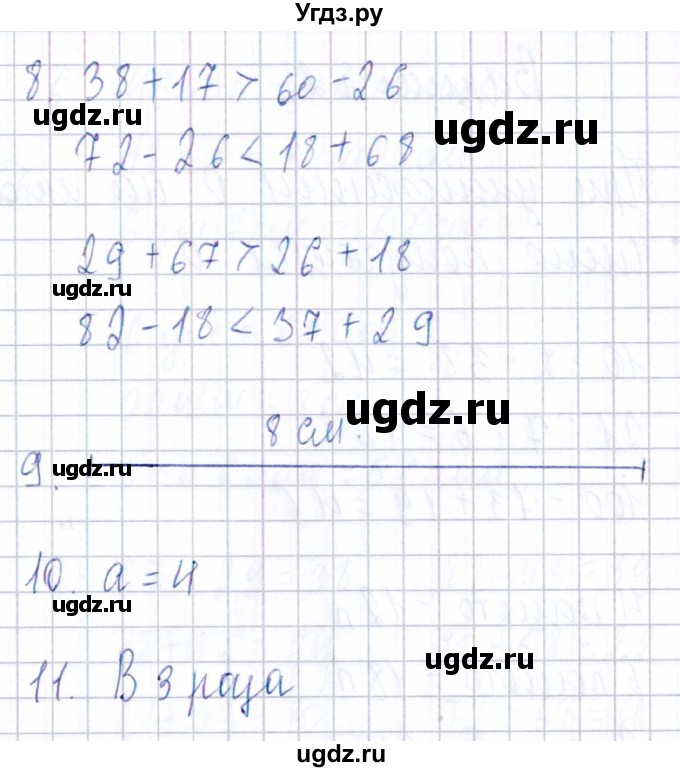 Угдз.ру
8. 38+17 > 60-26
ugdz.ru
ugdz.ru
72-26 < 18+68
29+67 > 26+18
ugdz.ru
82-18 < 37+29
8 см.
ugdz.ru
9.
ugdz.ru
10. a = 4
ugdz.ru
ugdz.ru
11. В 3 раза
ugdz.ru